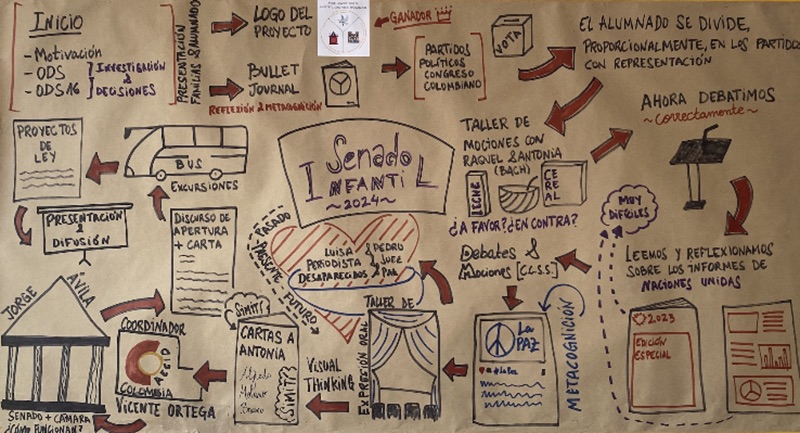 INICIO
- Motivación
- ODS
- ODS16
INVESTIGACIÓN
&
DECISIONES
PRESENTACIÓN
FAMILIAS & ALUMNADO
LOGO DEL
PROYECTO
GANADOR
BULLET
JOURNAL
REFLEXIÓN & METACOGNICIÓN
PARTIDOS
POLÍTICOS
CONGRESO
COLOMBIANO
VOTA
EL ALUMNADO SE DIVIDE,
PROPORCIONALMENTE, EN LOS PARTIDOS
CON REPRESENTACIÓN
TALLER DE
MOCIONES CON
RAQUEL & ANTONIA
(BACH)
LECHE
CEREAL
¿A FAVOR? ¿EN CONTRA?
AHORA DEBATIMOS
~correctamente~
MUY
DIFÍCILES
LEEMOS Y REFLEXIONAMOS
SOBRE LOS INFORMES DE
NACIONES UNIDAS
2023
EDICIÓN
ESPECIAL
Debates &
Mociones [CC.SS.]
La
PAZ
METACOGNICIÓN
TALLER DE
EXPRESIÓN ORAL
Senado
INFANTIL
~2024~
PASADO
PRESENTE
FUTURO
LUISA
PERIODISTA
DESAPARECIDOS
PEDRO
JUEZ
PAZ
VISUAL
THINKING
SIMITI
CARTAS A
ANTONIA
SIMITI
COORDINADOR
AECID
COLOMBIA
VICENTE ORTEGA
JORGE ÁVILA
SENADO + CÁMARA
¿CÓMO FUNCIONAN?
DISCURSO DE
APERTURA
+ CARTA
BUS
EXCURSIONES
PROYECTOS
DE
LEY
PRESENTACIÓN
&
DIFUSIÓN